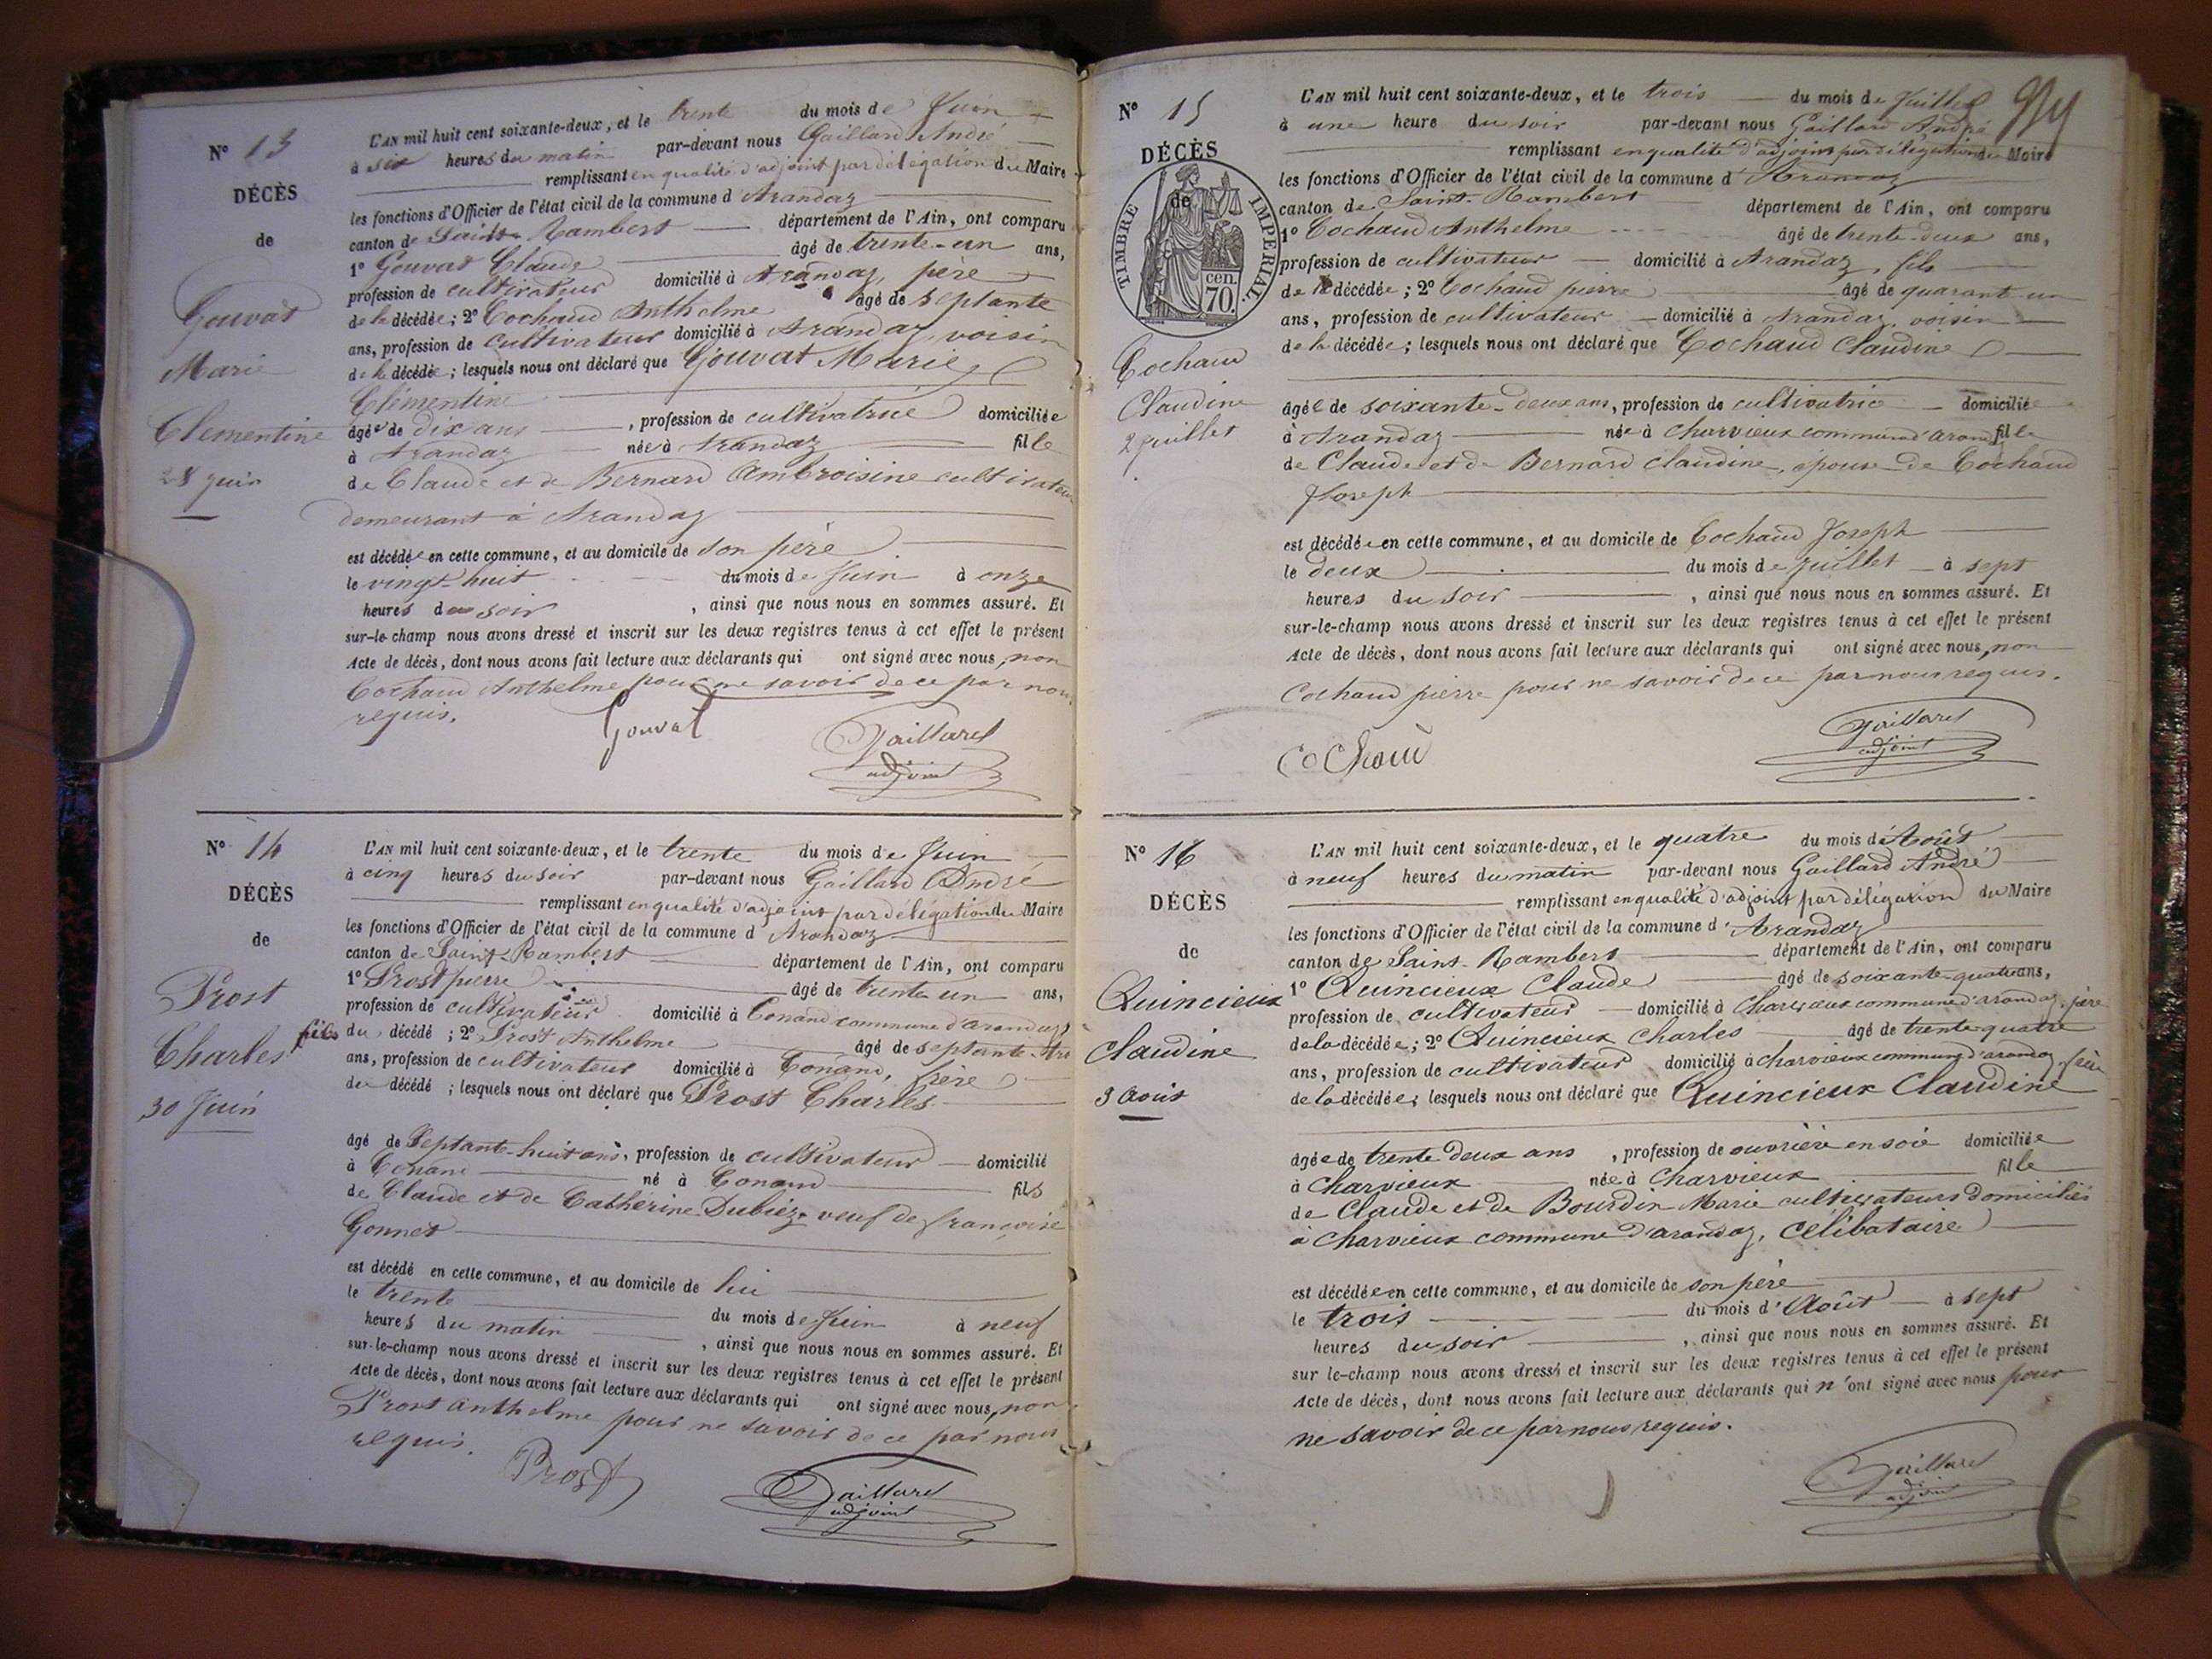 N° 13
DÉCÈS
de
Gouvat
Marie
Clementine
28 juin
L'AN mil huit cent soixante-deux, et le trente du mois de Juin
à six heures du matin par-devant nous Gaillard André
remplissant en qualité d'adjoint par délégation du Maire
les fonctions d'Officier de l'état civil de la commune d Arandaz
canton de Saint-Rambert département de l'Ain, ont comparu
1° Gouvat Claude âgé de trente-un ans,
profession de cultivateur domicilié à Arandaz, père
de la décédée; 2° Cochaud Anthelme âgé de septante
ans, profession de cultivateur domicilié à Arandaz, voisin
de la décédée; lesquels nous ont déclaré que Gouvat Marie
Clémentine
âgée de dix ans, profession de cultivatrice domiciliée
à Arandaz née à Arandaz fille
de Claude et de Bernard Ambroisine cultivateurs
demeurant à Arandaz
est décédée en cette commune, et au domicile de son père
le vingt-huit du mois de Juin à onze
heures du soir, ainsi que nous nous en sommes assuré. Et
sur-le-champ nous avons dressé et inscrit sur les deux registres tenus à cet effet le présent
Acte de décès, dont nous avons fait lecture aux déclarants qui ont signé avec nous, non
Cochaud Anthelme pour ne savoir de ce par nous
requis.
Gouvat
Gaillard
adjoint
N° 14
DÉCÈS
de
Prost
Charles
30 Juin
L'AN mil huit cent soixante-deux, et le trente du mois de Juin
à cinq heures du soir par-devant nous Gaillard André
remplissant en qualité d'adjoint par délégation du Maire
les fonctions d'Officier de l'état civil de la commune d Arandaz
canton de Saint-Rambert département de l'Ain, ont comparu
1° Prost pierre âgé de trente un ans,
profession de cultivateur domicilié à Conand commune d'arandaz
fils du décédé; 2° Prost Anthelme âgé de septante
ans, profession de cultivateur domicilié à Conand, frère
du décédé; lesquels nous ont déclaré que Prost Charles
âgé de Septante-huit ans, profession de cultivateur domicilié
à Conand né à Conand fils
de Claude et de Catherine Dubiez veuf de françoise
Gonnet
est décédé en cette commune, et au domicile de lui
le trente du mois de Juin à neuf
heures du matin, ainsi que nous nous en sommes assuré. Et
sur-le-champ nous avons dressé et inscrit sur les deux registres tenus à cet effet le présent
Acte de décès, dont nous avons fait lecture aux déclarants qui ont signé avec nous, non
Prost anthelme pour ne savoir de ce par nous
requis.
Prost
Gaillard
adjoint
N° 15
DÉCÈS
de
TIMBRE IMPERIAL.
cen.
70.
Cochaud
Claudine
2 juillet
L'AN mil huit cent soixante-deux, et le trois du mois de Juillet
à une heure du soir par-devant nous Gaillard André
remplissant en qualité d'adjoint par délégation du Maire
les fonctions d'Officier de l'état civil de la commune d Arandaz
canton de Saint-Rambert département de l'Ain, ont comparu
1° Cochaud Anthelme âgé de trente-deux ans,
profession de cultivateur domicilié à Arandaz, fils
de la décédée; 2° Cochaud pierre âgé de quarant-un
ans, profession de cultivateur domicilié à Arandaz, voisin
de la décédée; lesquels nous ont déclaré que Cochaud Claudine
âgée de soixante-deux ans, profession de cultivatrice domiciliée
à Arandaz née à Charvieux commune d'aran fille
de Claude et de Bernard Claudine, épouse de Cochaud
Joseph
est décédée en cette commune, et au domicile de Cochaud Joseph
le deux du mois de juillet à sept
heures du soir, ainsi que nous nous en sommes assuré. Et
sur-le-champ nous avons dressé et inscrit sur les deux registres tenus à cet effet le présent
Acte de décès, dont nous avons fait lecture aux déclarants qui ont signé avec nous, non
Cochaud pierre pour ne savoir de ce par nous requis.
Gaillard
adjoint
N° 16
DÉCÈS
de
Quincieux
Claudine
3 août
L'AN mil huit cent soixante-deux, et le quatre du mois d'Août
à neuf heures du matin par-devant nous Gaillard André
remplissant en qualité d'adjoint par délégation du Maire
les fonctions d'Officier de l'état civil de la commune d'Arandaz
canton de Saint-Rambert département de l'Ain, ont comparu
1° Quincieux Claude âgé de soixante-quatre ans,
profession de cultivateur domicilié à Charvieux commune d'arandaz, père
de la décédée; 2° Quincieux Charles âgé de trente-quatre
ans, profession de cultivateur domicilié à Charvieux commune d'arandaz, frère
de la décédée; lesquels nous ont déclaré que Quincieux Claudine
âgée de trente deux ans, profession de ouvrière en soie domiciliée
à Charvieux née à Charvieux fille
de Claude et de Bourdin Marie cultivateurs domiciliés
à Charvieux commune d'arandaz, célibataire
est décédée en cette commune, et au domicile de son père
le trois du mois d'Août à sept
heures du soir, ainsi que nous nous en sommes assuré. Et
sur le-champ nous avons dressé et inscrit sur les deux registres tenus à cet effet le présent
Acte de décès, dont nous avons fait lecture aux déclarants qui n'ont signé avec nous pour
ne savoir de ce par nous requis.
Gaillard
adjoint